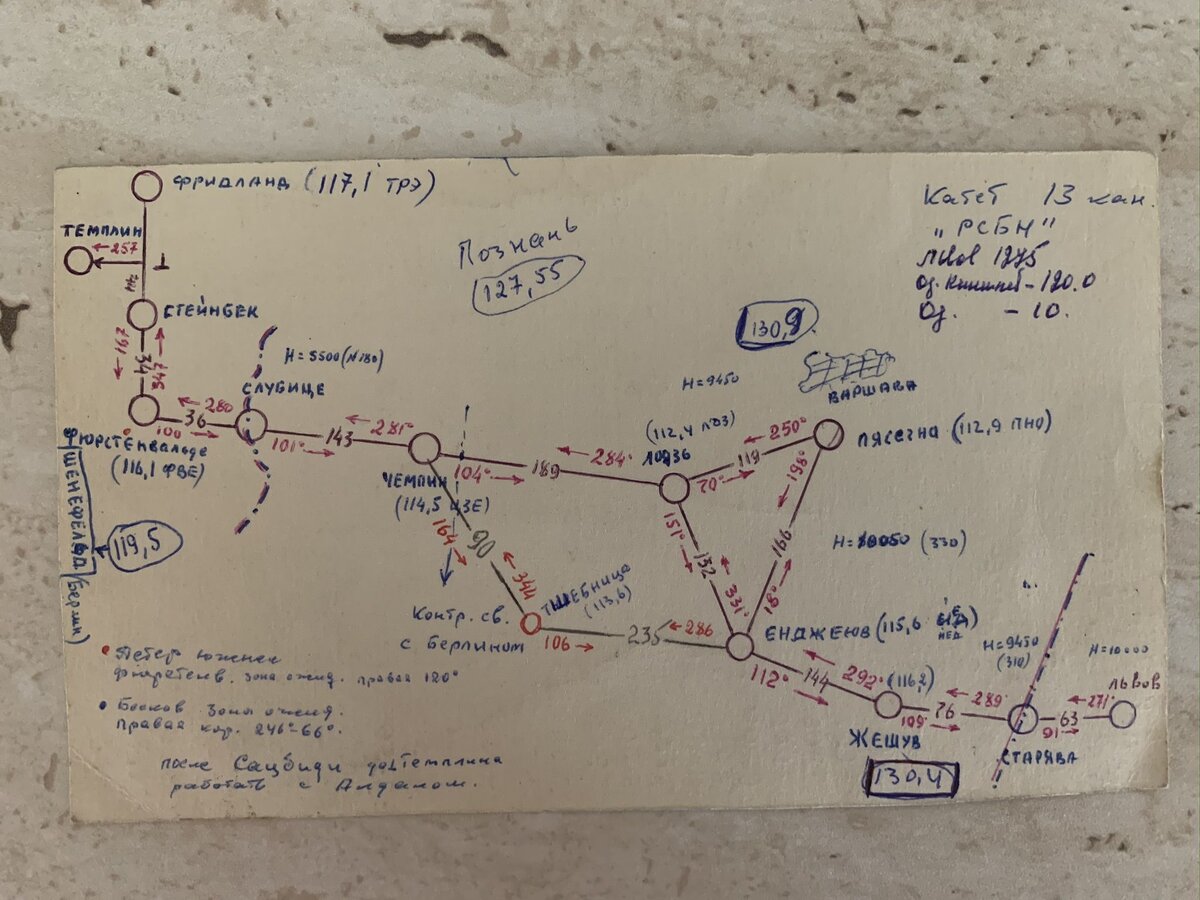 ФРИДЛАНД (117,1 ТРЭ)
Катет 13 кан.
"РСБН"
Львов 1275
Од. - 120.0
Од. - 10.
ТЕМПЛИН
← 257
Познань
127,55
СТЕЙНБЕК
← 167
34
347 →
130,9
Н=5500 (N180)
СЛУБИЦЕ
ВАРШАВА
Н=9450
← 280
36
100 →
ФЮРСТЕНВАЛЬДЕ
(116,1 ФВЕ)
101° →
143
← 281°
ЧЕМПИН
(114,5 ЦЗЕ)
104° →
189
← 284°
(112,4 ЛДЗ)
ЛОДЗЬ
70° →
119
← 250°
ПЯСЕЧНА (112,9 ПНО)
ШЕНЕФЕЛЬД (Берлин)
119,5
164 →
90
← 344
151° →
132
← 331°
← 198°
166
18° →
Н=10050 (330)
Контр. св.
с Берлином
ТШЕБНИЦА
(113,6)
106 →
235
← 286
ЕНДЖЕЮВ (115,6
ЙЕД
112° →
144
← 292°
(116,2)
109° →
76
← 289°
Н=9450
(310)
Н=10000
ЛЬВОВ
← 271°
63
91 →
ЖЕШУВ
130,4
СТАРЯВА
Петер южнее
фюрстенв. зона ожид. правая 120°
Бесков зона ожид.
правая кор. 246°-66°.
после Сацбиди до Темплина
работать с Алдаком.